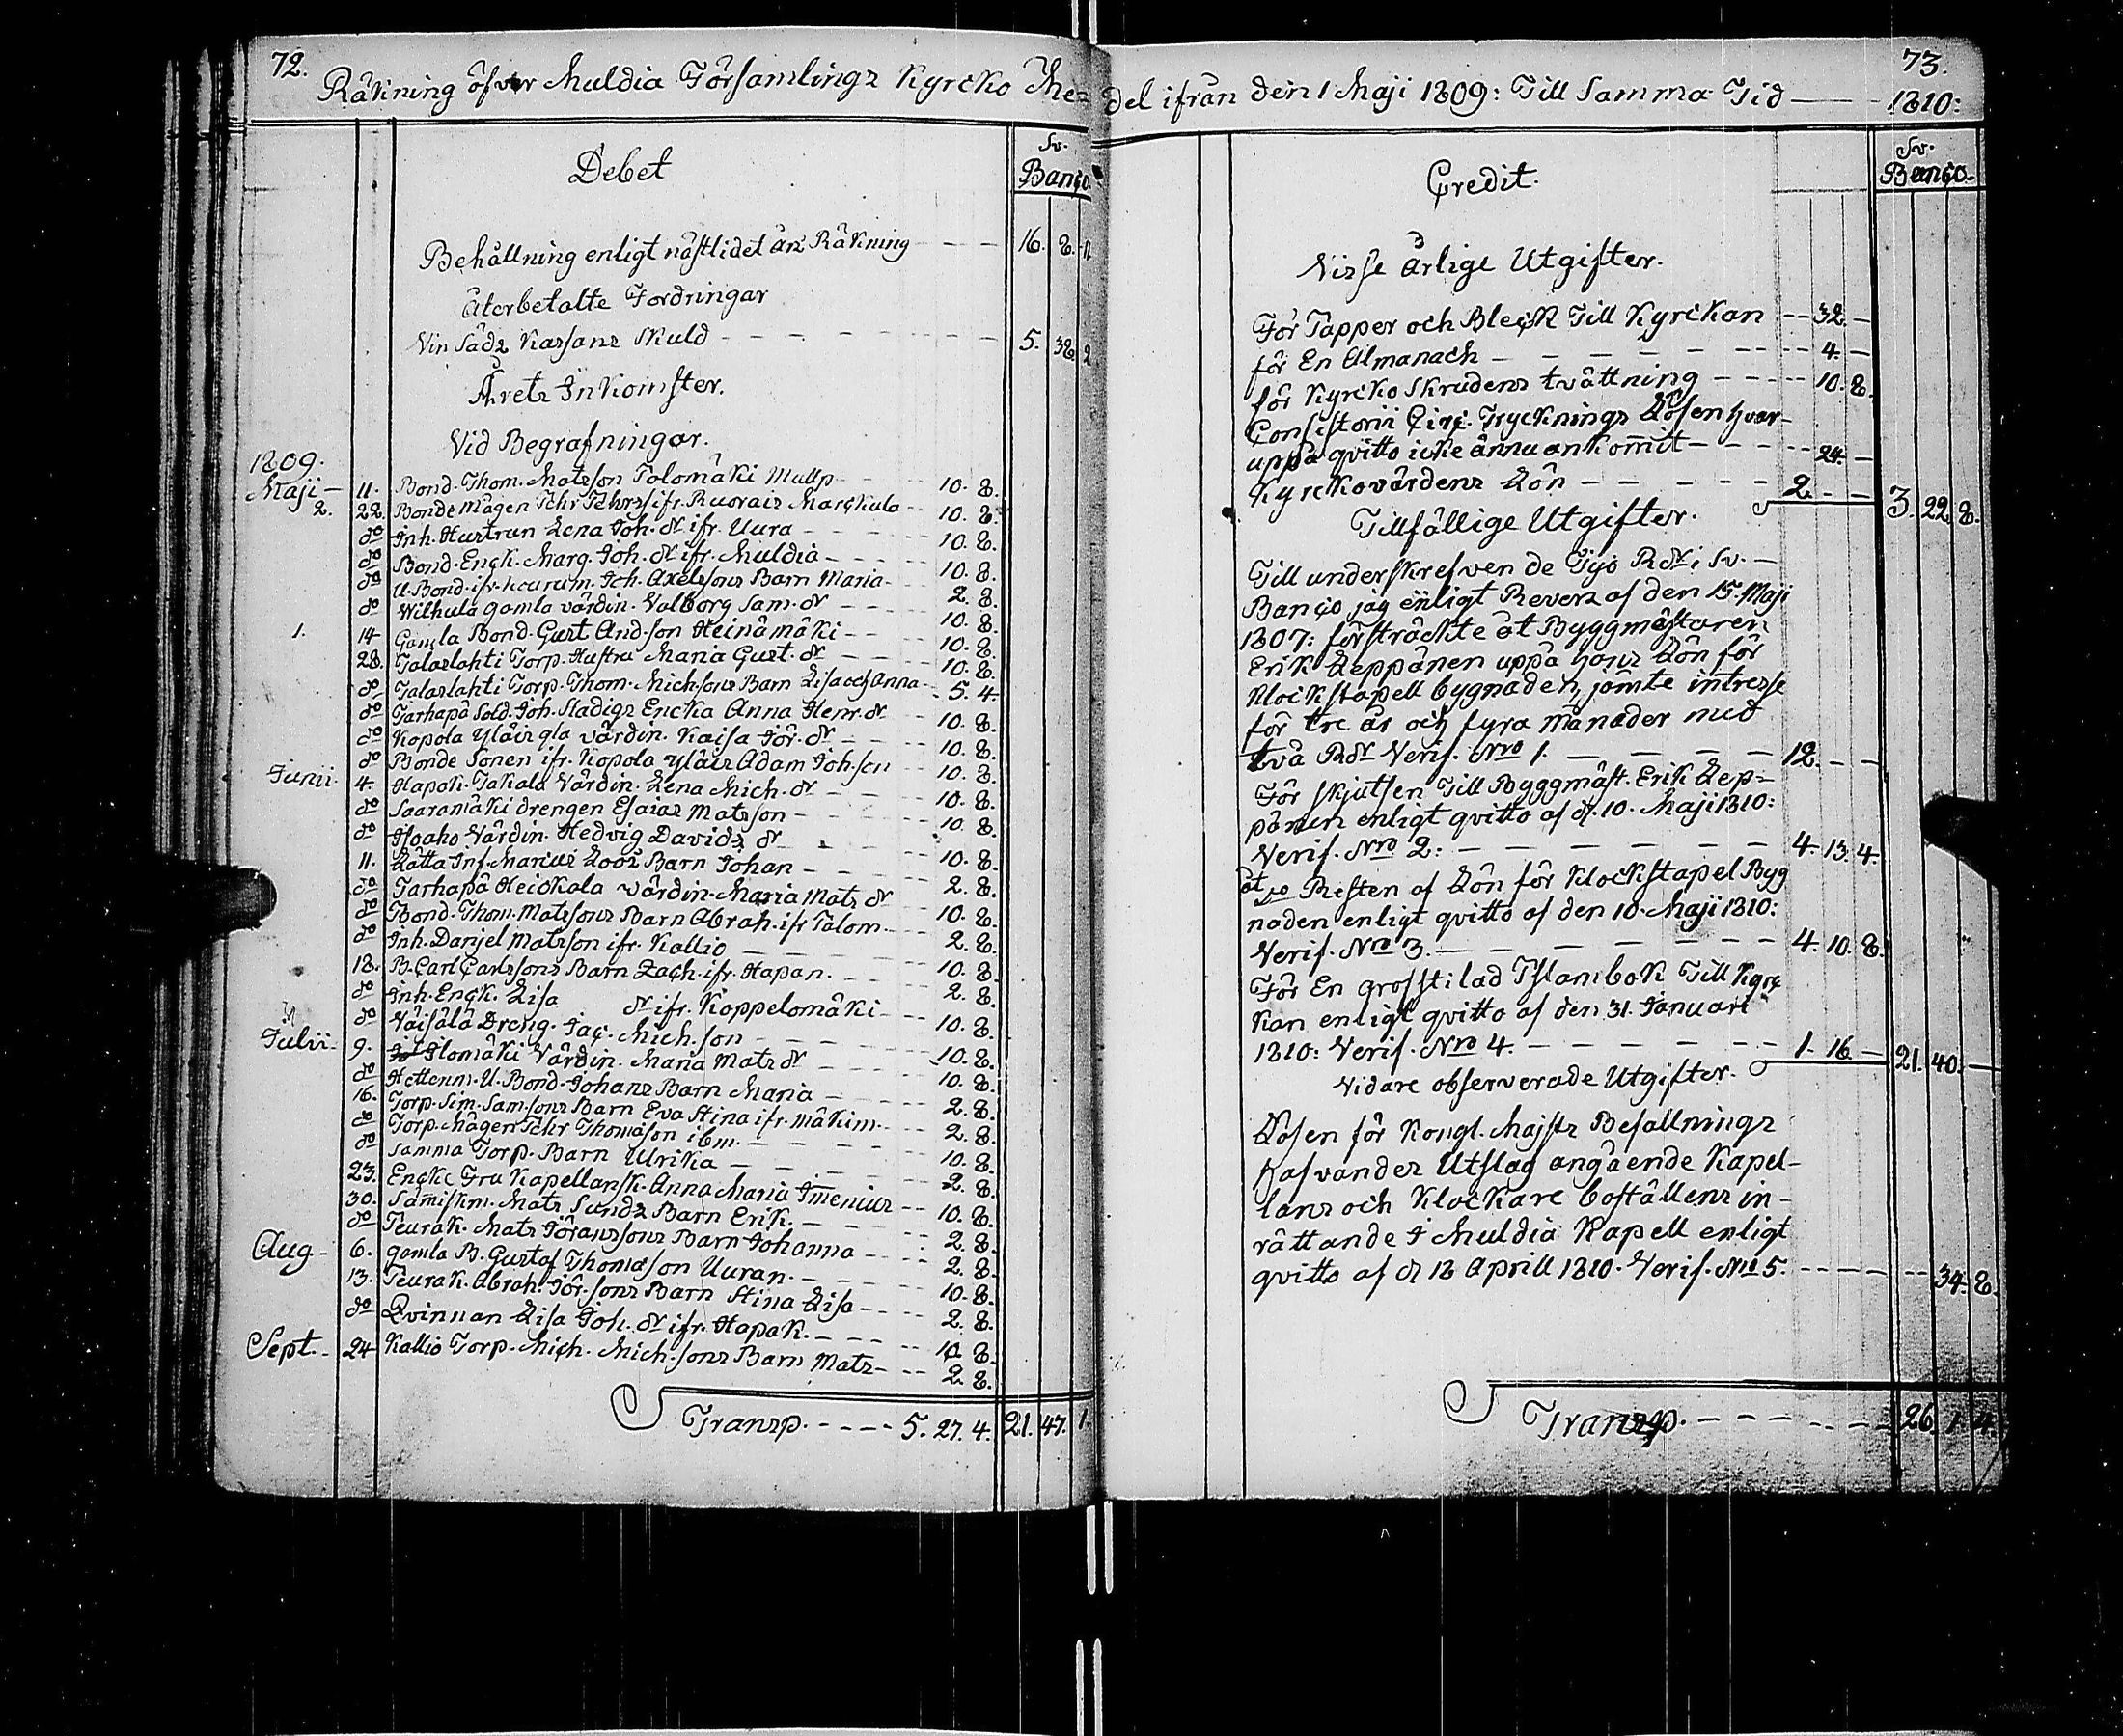 72.
Räkning öfver Muldia Församlings Kyrcko Me=
Debet
Sv.
Banço.
Behållning enligt nästlidet års Räkning — — — 16. 8. 11
Återbetalte Fordringar
Vin Säds Kassans Skuld — — — 5. 38. 2
Årets Inkomster.
Vid Begrafningar.
1809.
Maji — 11. Bond. Thom. Matsson Talomäki Mullp — 10. 8.
2. 22. Bonde Mågen Fehr Fehrss ifr. Ruorais Marckula — 10. 8.
do Inh. Hustrun Lena Joh. dr ifr. Uura — 10. 8.
do Bond. Enck. Marg. Joh. dr ifr. Muldia — 10. 8.
do U. Bond. ifr. Joh. Axelssons Barn Maria — 2. 8.
do Wilhula gamla värdin. Valborg Sam. dr — 10. 8.
1. 14 Gamla Bond. Gust And.son Heinämäki — 10. 8.
28. Talaslahti Torp. Hustru Maria Gust. dr — 10. 8.
do Talaslahti Torp. Thom. Mich.sons Barn Lisa och Anna — 5. 4.
do Tarhapä Sold. Joh. Stadigs Encka Anna Henr. dr — 10. 8.
do Kopola yläis gla värdin. Kaisa Jör. dr — 10. 8.
do Bonde Sonen ifr. Kopola yläis Adam Joh.son — 10. 8.
Junii. 4. Hapoki Jakala Värdin. Lena Mich. dr — 10. 8.
do Saaramäki drengen Esaias Matsson — 10. 8.
do Hoaho Värdin. Hedvig Davids dr — 10. 8.
11. Lätta Inh. Marius Loos Barn Johan — 2. 8.
do Tarhapä Heickala värdin. Maria Mats dr — 10. 8.
do Bond. Thom. Matssons Barn Abrah. ifr Talom. — 2. 8.
do Inh. Danjel Matsson ifr. Kallio — 10. 8.
18. B. Carl Carlssons Barn Zach. ifr. Hapan. — 2. 8.
do Inh. Enck. Lisa dr ifr. Koppelomäki — 10. 8.
do Väisälä Dreng. Jac. Mich.son — 10. 8.
Julii. 9. Ilomäki Värdin. Maria Mats dr — 10. 8.
do Hettenm. U. Bond. Johans Barn Maria — 2. 8.
16. Torp. Sim. Sam.sons Barn Eva Stina ifr. mäkim. — 2. 8.
do Torp. Mågen Fehr Thomasson ibm. — 10. 8.
do Samma Torp. Barn Ulrika — 2. 8.
23. Encke Fru Kapellansk. Anna Maria Imenius — 10. 8.
30. Sämiskm. Mats Sunds Barn Erik. — 2. 8.
do Teurak. Mats Jöranssons Barn Johanna — 2. 8.
Aug — 6. gamla B. Gustaf Thomasson Uuran. — 10. 8.
13. Teurak. Abrah. Jör.sons Barn Stina Lisa — 2. 8.
do Qvinnan Lisa Joh. dr ifr. Hapak. — 10. 8.
Sept. — 24 Kallio Torp. Mich. Mich.sons Barn Mats — 2. 8.
Transp. — — — 5. 27. 4. 21. 47. 1.
73.
del ifrån den 1 Maji 1809: Till Samma Tid — 1810:
Credit.
Sv.
Banço.
Visse årlige Utgifter.
För Tapper och Bleck Till Kyrckan — 32. —
för En Almanach — — — 4. —
för Kyrcko Skrudens tvättning — — 10. 8.
Consistorii Circ. Trycknings Lösen hvar-
uppå qvitto icke ännu ankommit — — 24. —
Kyrckovärdens Lön — — — 2. — — 3. 22. 8.
Tillfällige Utgifter.
Till underskrefven de Tijo Rdr i Sv. —
Banço jag enligt Revers af den 15. Maji
1807: försträckte åt Byggmästaren
Erik Leppänen uppå hans Lön för
Klockstapell bygnaden, jämte intresse
för tre år och fyra månader med
två Rdr Verif. Nro 1. — — — 12. — —
För skjutsen Till Byggmäst. Erik Lep=
pänen enligt qvitto af d. 10. Maji 1810:
Verif. Nro 2: — — — 4. 13. 4.
åt do Resten af Lön för Klockstapel Byg
naden enligt qvitto af den 10. Maji 1810:
Verif. Nro 3. — — — 4. 10. 8.
För En grosstilad Psalmbok Till Kyrc
kan enligt qvitto af den 31. Januari
1810: Verif. Nro 4. — — — 1. 16. — 21. 40. —
Vidare observerade Utgifter.
Lösen för Kongl. Majsts Befallnings
hafvandes Utslag angående Kapel-
lans och Klockare boställens in-
rättande i Muldia Kapell enligt
qvitto af d 18 Aprill 1810. Verif. Nro 5. — — 34. 8.
Transp. — — — 26. 1. 4.